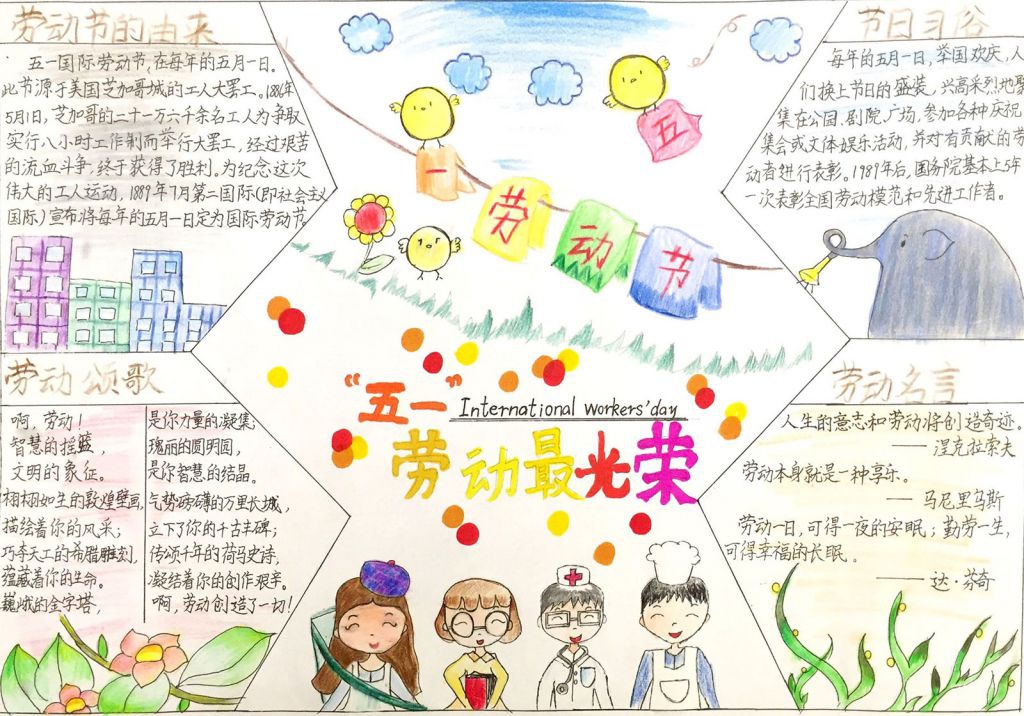 劳动节的由来
五一国际劳动节,在每年的五月一日。
此节源于美国芝加哥城的工人大罢工。1886年
5月1日,芝加哥的二十一万六千余名工人为争取
实行八小时工作制而举行大罢工,经过艰苦
的流血斗争,终于获得了胜利。为纪念这次
伟大的工人运动,1889年7月第二国际(即社会主义
国际)宣布将每年的五月一日定为国际劳动节。
五
一
劳
动
节
节日习俗
每年的五月一日,举国欢庆,人
们换上节日的盛装,兴高采烈地聚
集在公园、剧院、广场,参加各种庆祝
集会或文体娱乐活动,并对有贡献的劳
动者进行表彰。1989年后,国务院基本上5年
一次表彰全国劳动模范和先进工作者。
“五一” International workers' day
劳动最光荣
劳动颂歌
啊,劳动!
智慧的摇篮,
文明的象征。
栩栩如生的敦煌壁画,
描绘着你的风采;
巧夺天工的希腊雕刻,
蕴藏着你的生命。
巍峨的金字塔,
是你力量的凝集;
瑰丽的圆明园,
是你智慧的结晶。
气势磅礴的万里长城,
立下了你的千古丰碑;
传颂千年的荷马史诗,
凝结着你的创作艰辛。
啊,劳动创造了一切!
劳动名言
人生的意志和劳动将创造奇迹。
——涅克拉索夫
劳动本身就是一种享乐。
——马尼里乌斯
劳动一日,可得一夜的安眠;勤劳一生,
可得幸福的长眠。
——达·芬奇